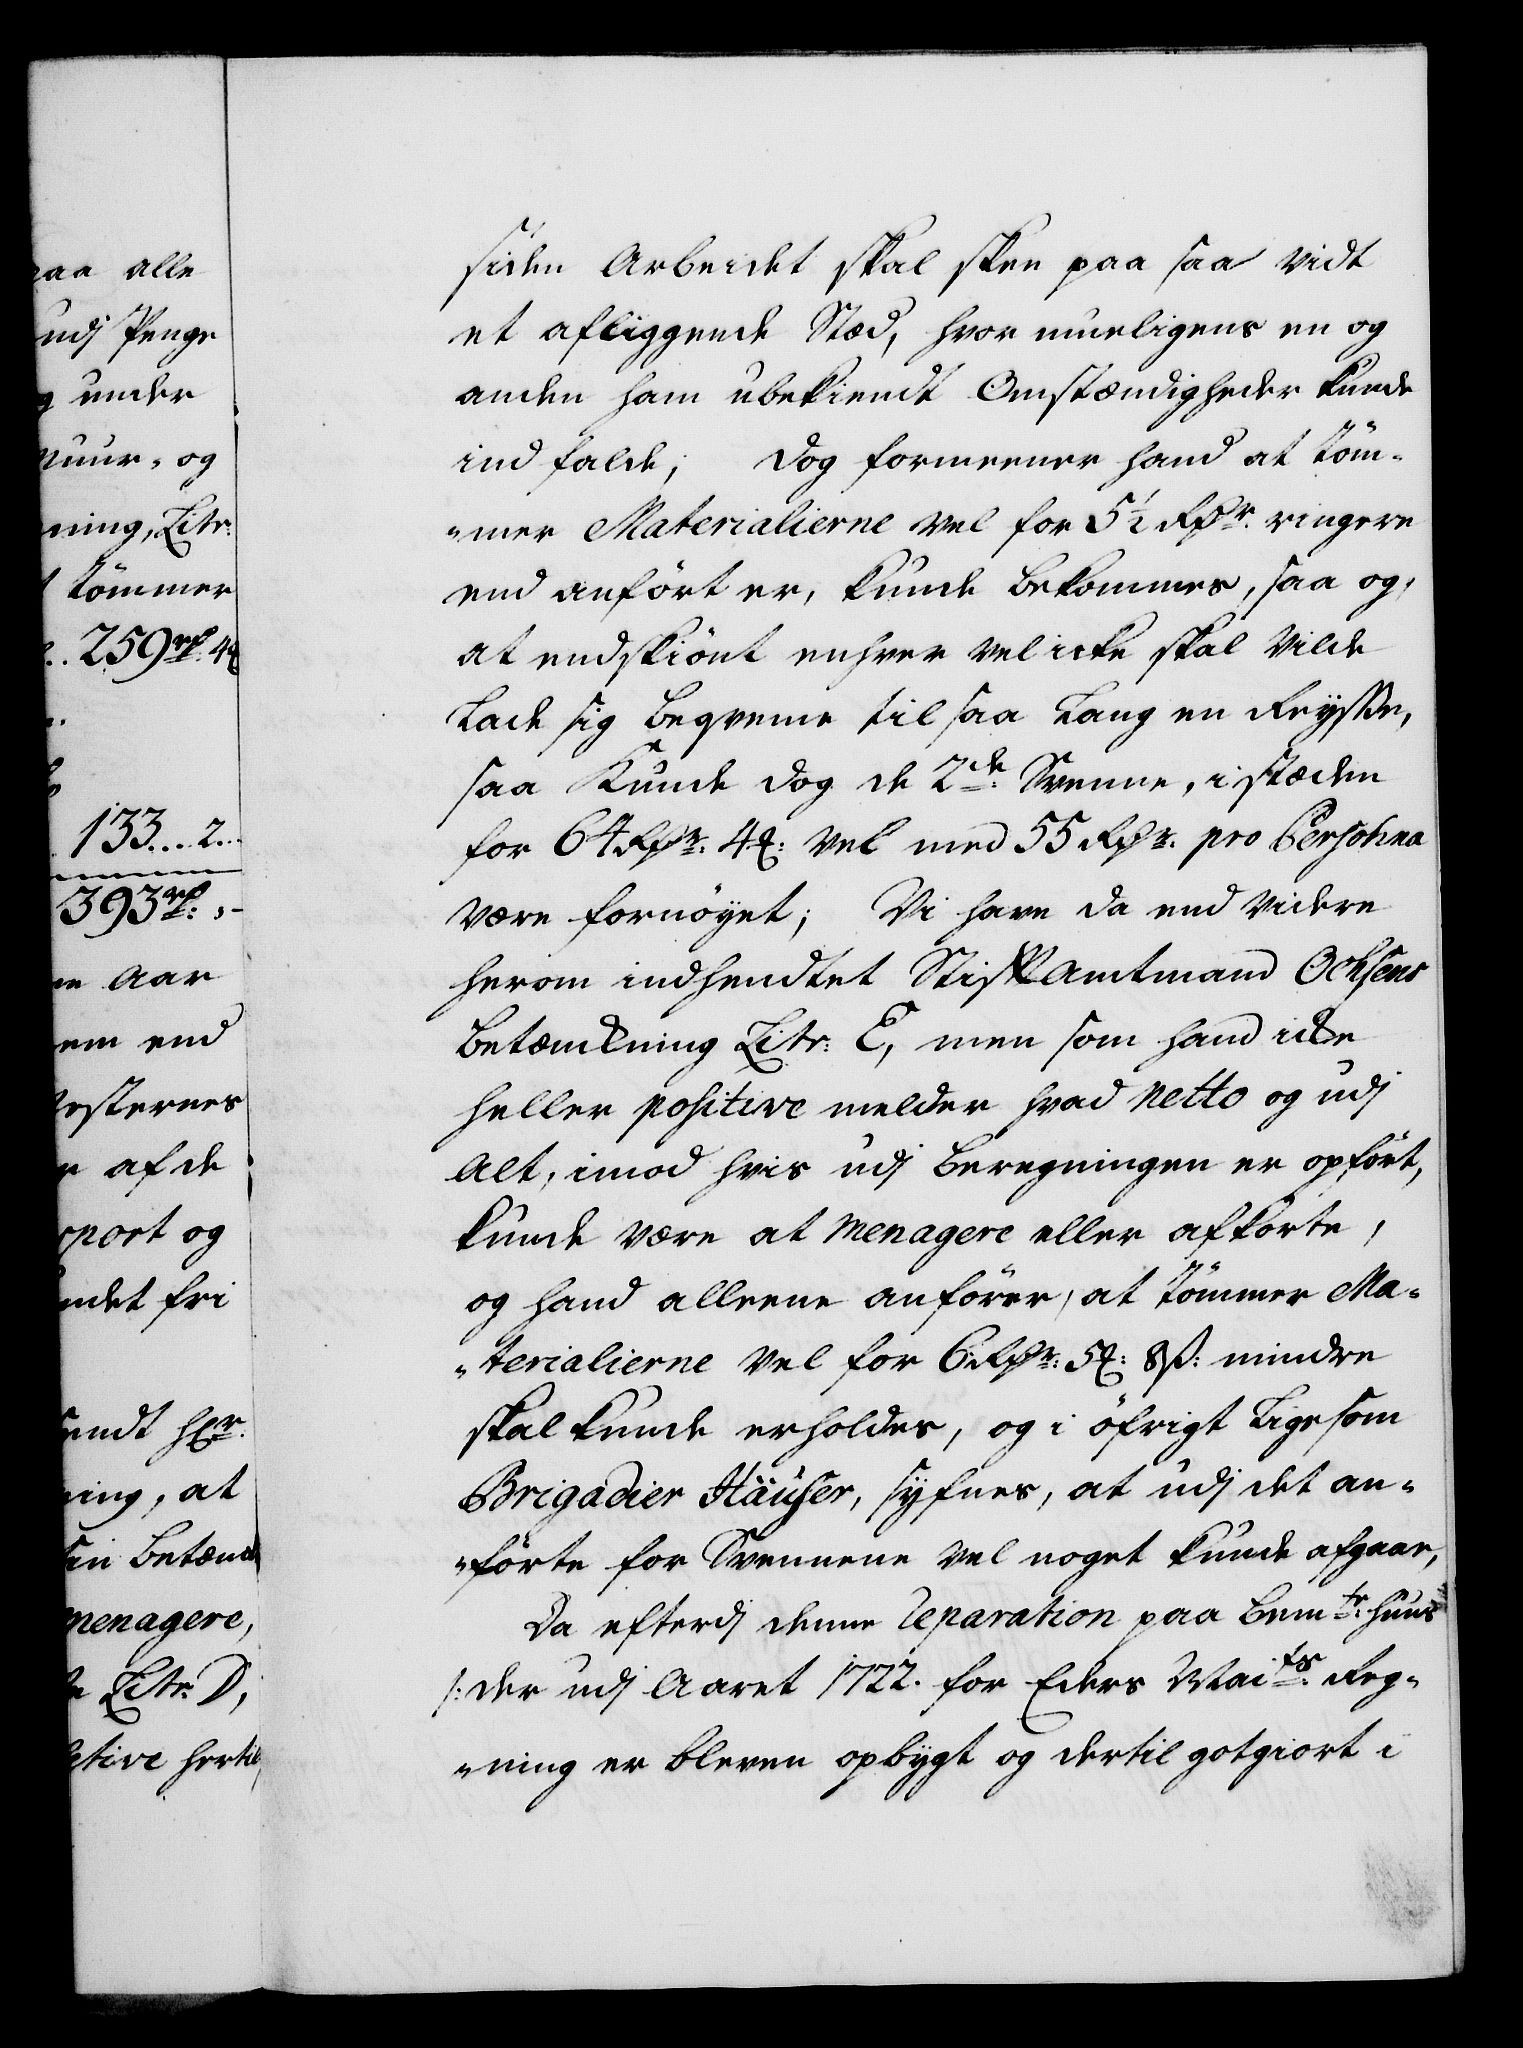 paa alle
udj Penge
og under
Muur- og
ning, Litr:
tömmer
259 rd. 4
133...2...
393 rd: ,-
Aar
em end
af de
port og
ndet fri
sendt
ning, at
sin betænck
menagere,
Litr: D,
hertil
siden Arbeidet skal skee paa saa vidt
et afliggende Stæd, hvor mueligens en og
anden ham ubekiendt Omstændigheder kunde
indfalde; Dog formeener hand at töm-
-mer Materialierne vel for 5½ Rdr. ringere
end anfört er, kunde bekommes, saa og,
at endskiönt enhver vel icke skal vilde
Lade sig beqveme til saa Lang en Reysse,
saa kunde dog de 2de Svenne, i stæden
for 64 Rdr. 4 mk: vel med 55 Rdr. pro Persohna
være fornöyet; Vi have da end videre
herom indhendtet Stifft Amtmand Ochsens
Betænckning Litr: E, men som hand icke
heller positive melder hvad Netto og udj
Alt, imod hvis udj Beregningen er opfört,
kunde være at Menagere eller afkorte,
og hand alleene anförer, at Tömmer Ma-
-terialierne vel for 6 Rdr: 5 mk: 8 ß: mindre
skal kunde erholdes, og i öfrigt Ligesom
Brigadier Häuser, syfnes, at udj det an-
-förte for Svennene vel noget kunde afgaae,
Da efterdj denne Reparation paa bemte: Huus
/: der udj Aaret 1722. for Eders Maits: Reg-
-ning er bleven opbygt og dertil gotgiort i